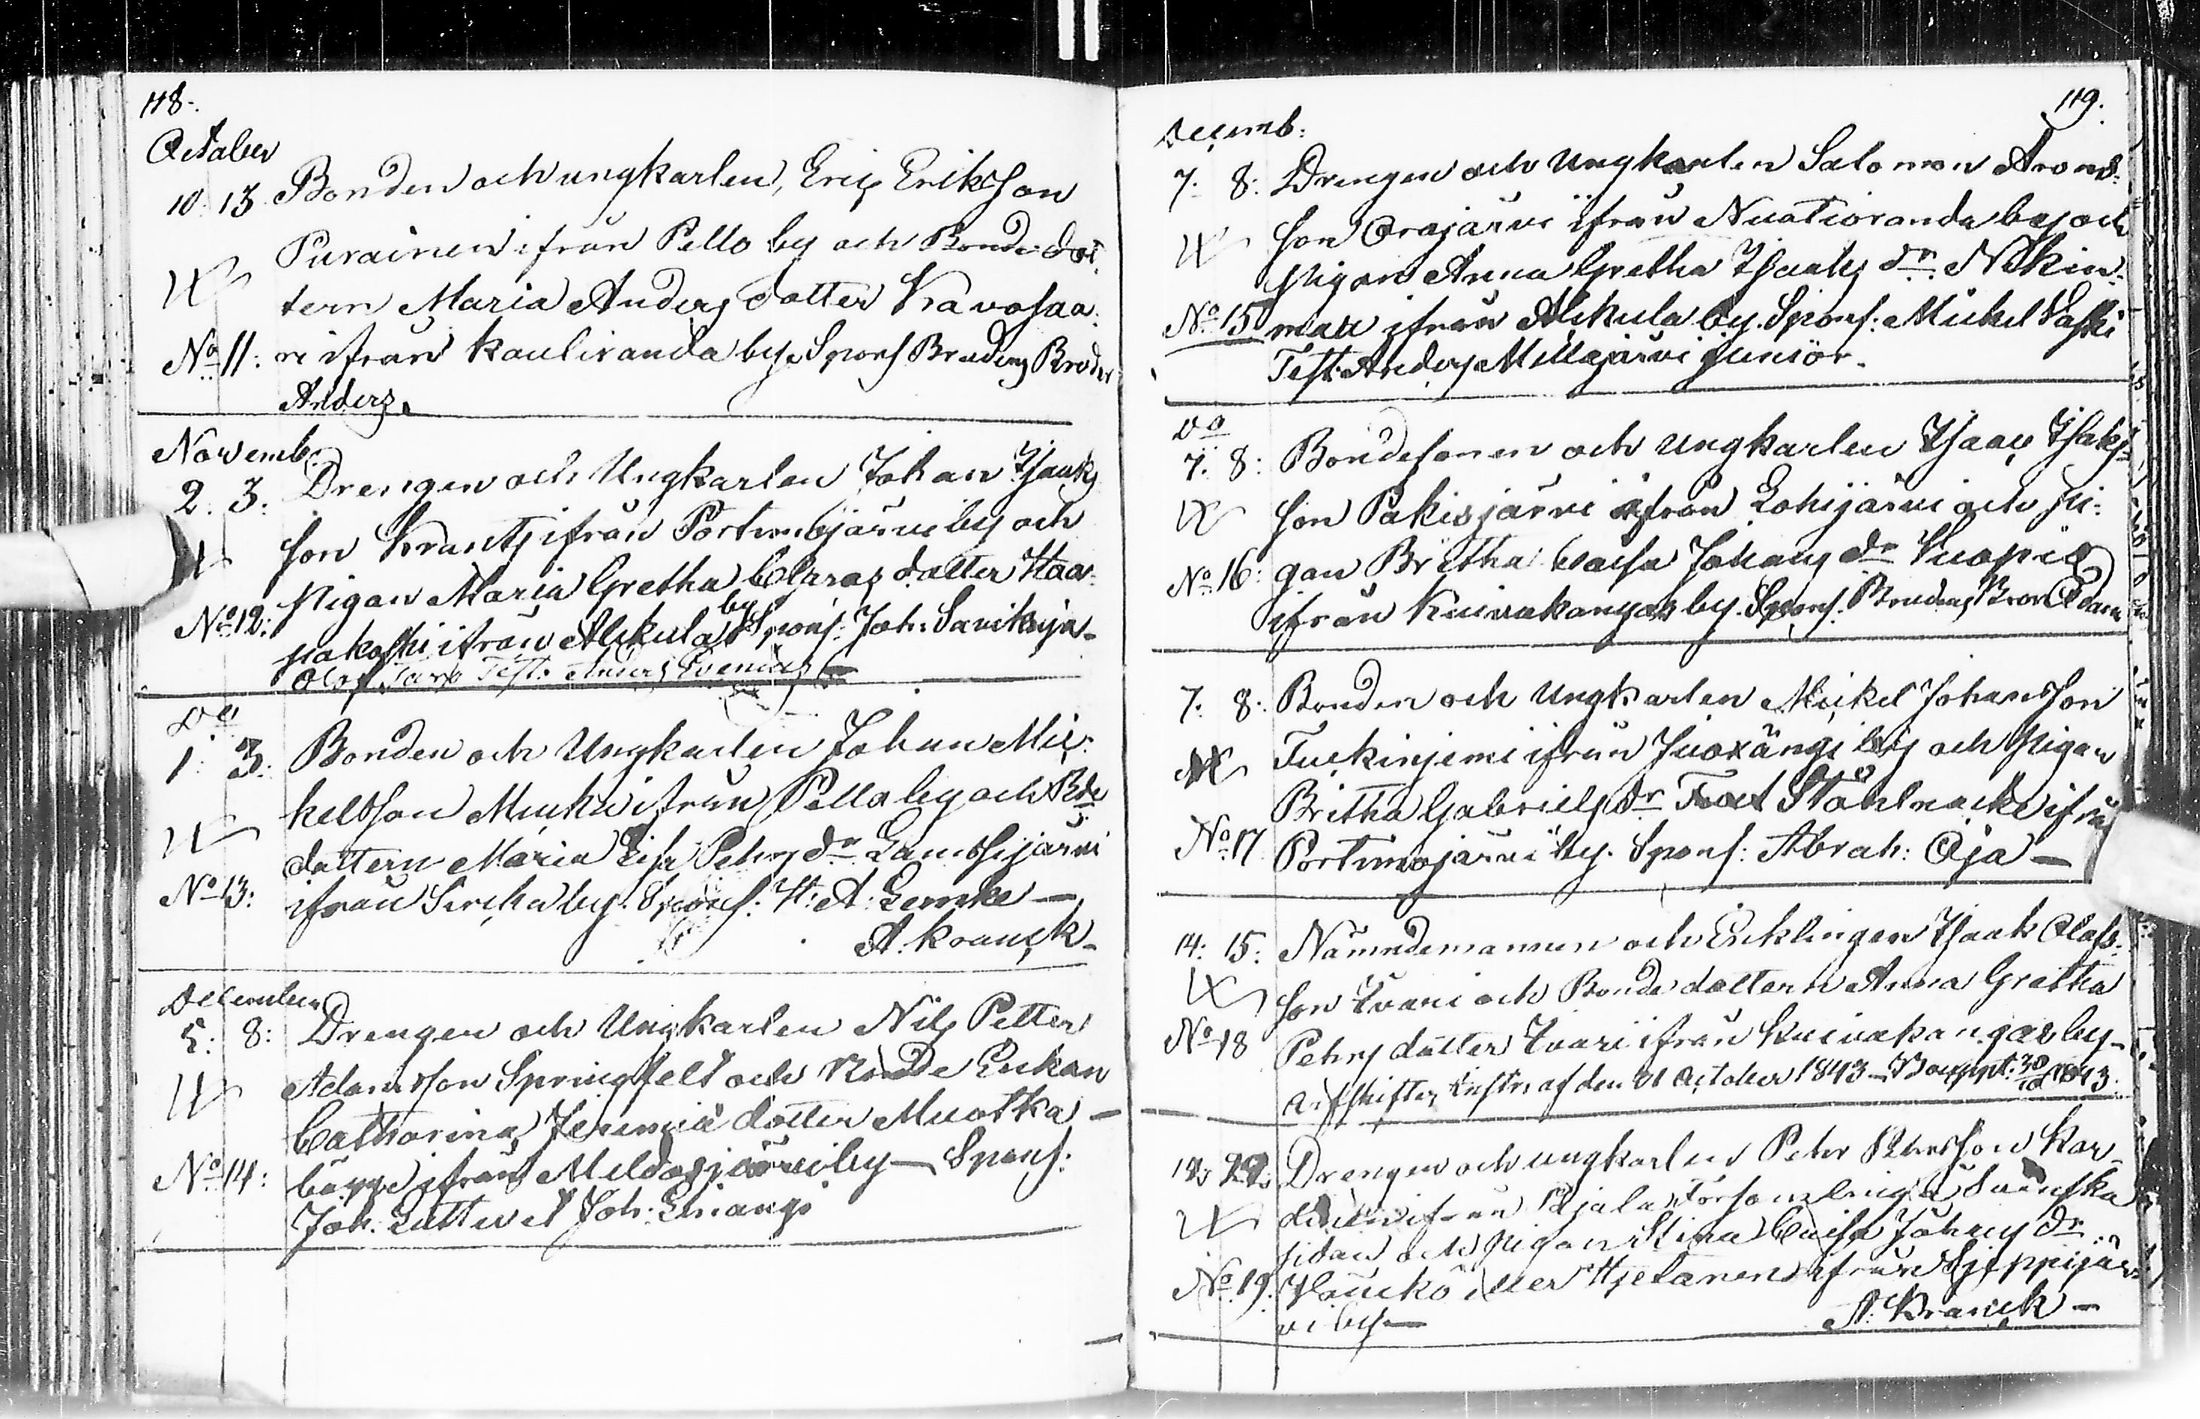 118.
October
10. 13 Bonden och ungkarlen, Eric Eriksson
Purainen ifrån Pello by och Bondedot-
tern Maria Anders dotter Kavosaa-
No 11: ri ifrån Kauliranda by, Spons Brudens Broder
Anders.
Novemb:
2. 3: Drengen och Ungkarlen Johan Isaaks
son Krantz ifrån Portimojärvi by och
Pigan Maria Gretha Claras dotter Haa-
No 12: pakoski ifrån Alkula by Spons: Joh: Savikuja
Olof Test: Anders
Do
1: 3: Bonden och Ungkarlen Johan Mic-
kelsson Muka ifrån Pello by och Bde
dottern Maria Lisa Pehrs dr Lamsijärvi
No 13: ifrån Turtola by. Spons: H: A: Lemke —
A. Kranck -
December
5: 8: Drengen och Ungkarlen Nils Petter
Adamsson Springfelt och Bonde Enkan
Catharina Jeremiæ dotter Muotka —
No 14: bägge ifrån Meldosjärvi by — Spons:
Joh. et Joh:
119.
Decemb:
7. 8: Drengen och Ungkarlen Salomon Arons-
son Orajärvi ifrån Nuotioranda by och
Pigan Anna Gretha Isaaks dr. Nikin-
No 15 maa ifrån Alkula by. Spons: Mickel
Test: Anders Mellajärvi junior.
Do
7. 8: Bondesonen och Ungkarlen Isaac Isaks-
son Pakisjärvi ifrån Lohijärvi och Pi-
No 16: gan Britha Caisa Johans dr Kuopio
ifrån Kuivakangas by. Spons: Brudens Bror Adam
7. 8: Bonden och Ungkarlen Mickel Johansson
Tuckiniemi ifrån Juoxängi by och Pigan
Britha Gabriels dr Stålnacke ifrån
No 17 Portimojärvi by. Spons: Abrah: Oja —
14: 15: Nämndemannen och Encklingen Isaak Olofs-
son Kvari och Bonde dottern Anna Gretha
No 18 Pehrs dotter Kvari ifrån Kuivakangas by —
Arfskiftes Instr: af den 21 October 1843 — 1843
18. 22. Drengen och ungkarlen Pehr Pehrsson
ifrån Pajala församling å Svenska
sidan och Pigan Stina Caisa Johans dr
No 19: eller Hjetanen ifrån Sieppijär-
vi by — A: Kranck —